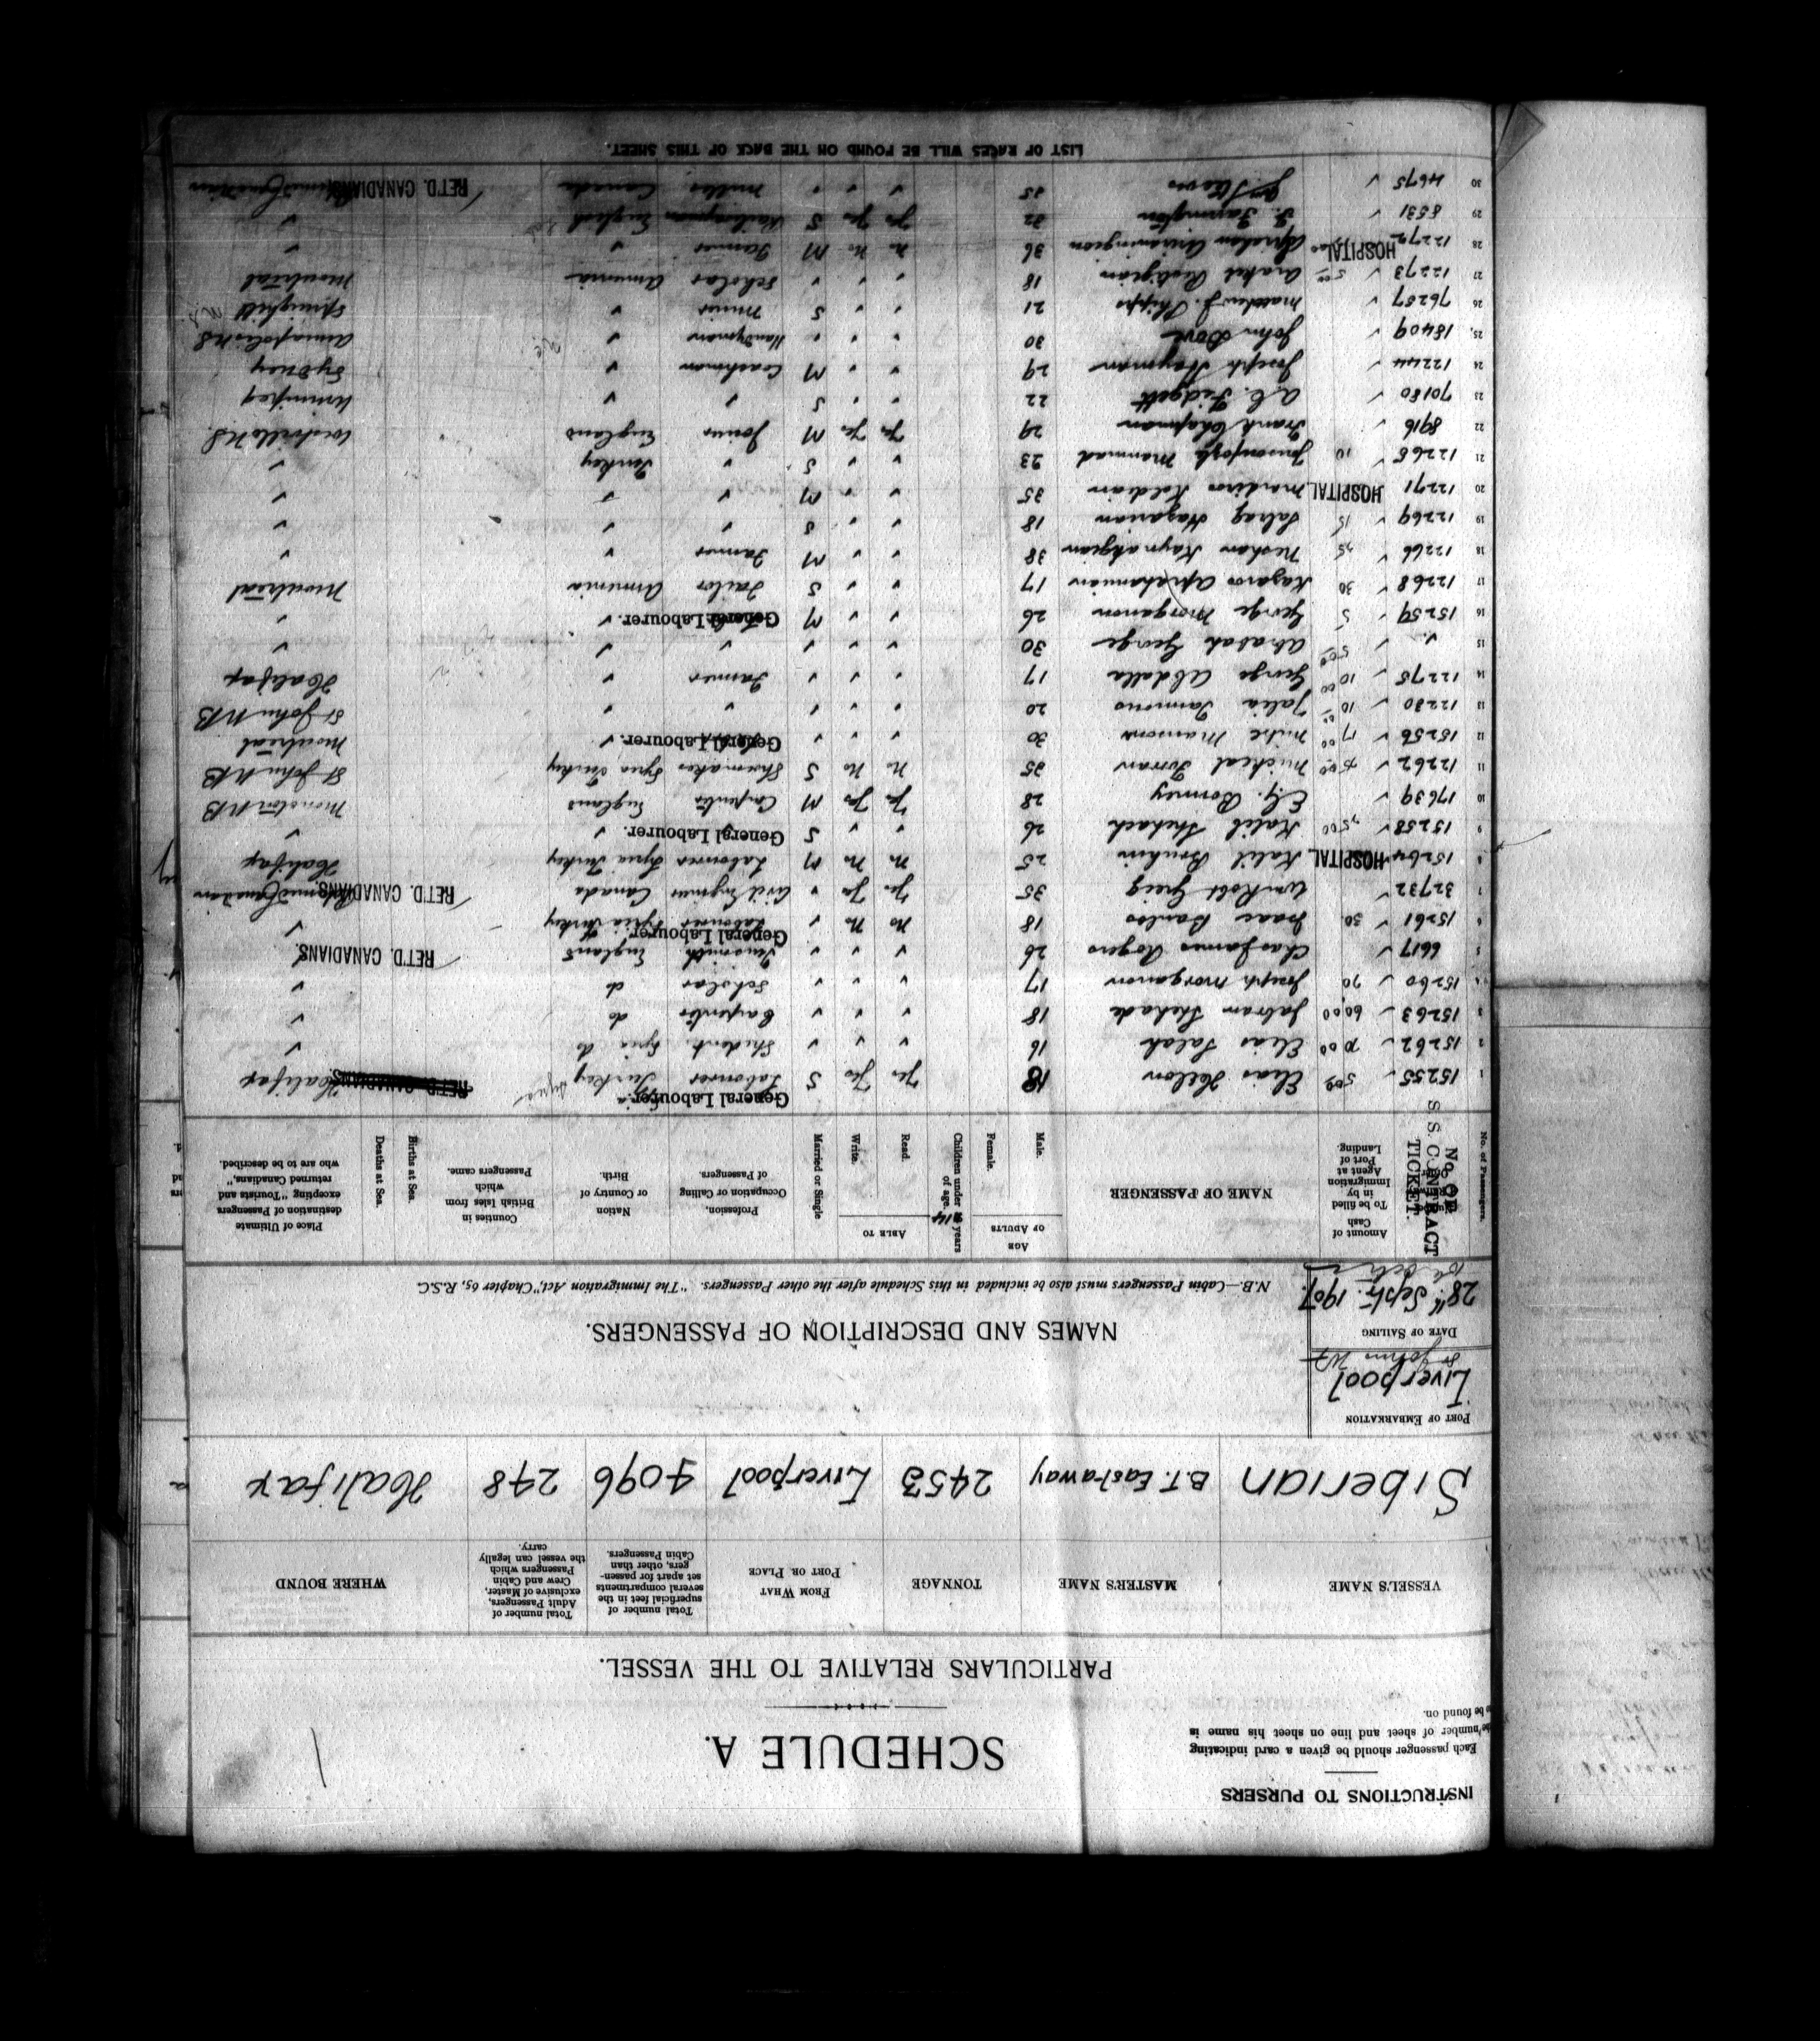 INSTRUCTIONS TO PURSERS
Each passenger should be given a card indicating
the number of sheet and line on sheet his name is
to be found on.
SCHEDULE A.
1
PARTICULARS RELATIVE TO THE VESSEL.
VESSEL'S NAME MASTER'S NAME TONNAGE FROM WHAT PORT OR PLACE Total number of superficial feet in the several compartments set apart for passengers, other than Cabin Passengers. Total number of Adult Passengers, exclusive of Master, Crew and Cabin Passengers which the vessel can legally carry. WHERE BOUND
Siberian B.T. Eastaway 2453 Liverpool 4096 248 Halifax
PORT OF EMBARKATION
Liverpool
St Johns Nf
DATE OF SAILING
28th Septr. 1907
NAMES AND DESCRIPTION OF PASSENGERS.
N.B.—Cabin Passengers must also be included in this Schedule after the other Passengers. "The Immigration Act," Chapter 65, R.S.C.
No. of Passengers. No. OF S.S. CONTRACT TICKET. Amount of Cash To be filled in by Immigration Agent at Port of Landing. NAME OF PASSENGER AGE OF ADULTS Male. Female. Children under 14 years of age. ABLE TO Read. Write. Married or Single Profession, Occupation or Calling of Passengers. Nation or Country of Birth. Counties in British Isles from which Passengers came. Births at Sea. Deaths at Sea. Place of Ultimate destination of Passengers excepting "Tourists and returned Canadians," who are to be described.
1 15255 ✓ 500 Elias Hellon 18 Yes Yes S Labourer General Labourer. Turkey Syria RET'D. CANADIANS Halifax
2 15262 ✓ Elias Salah 16 ✓ ✓ ✓ Student. Syria do ✓
3 15263 ✓ 6000 Jabran Shehade 18 ✓ ✓ ✓ Carpenter do ✓
4 15260 ✓ 70 Joseph Morganon 17 ✓ ✓ ✓ Scholar do ✓
5 6617 ✓ Chas James Rogers 26 ✓ ✓ ✓ England RET'D. CANADIANS. ✓
6 15261 ✓ 30 Isaac Banlos 18 No No ✓ Labourer General Labourer. Syria Turkey ✓
7 32732 ✓ Wm Robt Greig 35 Yes Yes ✓ Civil Engineer Canada RET'D. CANADIANS. Returned Canadian
8 15264 HOSPITAL Kalil Bruhim 25 No No M Labourer Syria Turkey Halifax
9 15258 ✓ Kalil Shehach 26 ✓ ✓ S General Labourer. ✓ ✓
10 17639 ✓ E.G. Bonney 28 Yes Yes M Carpenter England Moncton NB
11 12262 ✓ Micheal Forran 25 No No S Shoemaker Syria, Turkey St John NB
12 15256 ✓ 1700 Mitre Mansons 30 ✓ ✓ ✓ General Labourer. ✓ Montreal
13 12230 ✓ 10 Jalia Tannous 20 ✓ ✓ ✓ ✓ ✓ St John NB
14 12275 ✓ 1000 George Abdalla 17 ✓ ✓ ✓ Farmer ✓ Halifax
15 ✓ ✓ 500 Abadah George 30 ✓ ✓ ✓ ✓ ✓ ✓
16 15259 ✓ 5 George Morganon 26 ✓ ✓ M General Labourer. ✓ ✓
17 12268 ✓ 30 Kazaros Aprahamian 17 ✓ ✓ S Tailor Armenia Montreal
18 12266 ✓ Neshan Kaynakgian 38 ✓ ✓ M Farmer ✓ ✓
19 12269 ✓ 15 Satrag Hazarian 18 ✓ ✓ S ✓ ✓ ✓
20 12271 HOSPITAL Mardiros Koldian 35 ✓ ✓ M ✓ ✓ ✓
21 12265 ✓ 10 Mammad 23 ✓ ✓ S ✓ Turkey ✓
22 8916 ✓ Frank Chapman 29 Yes Yes M Joiner England Westville N.S.
23 70180 ✓ A.C. Fidgett 22 ✓ ✓ S ✓ ✓ Winnipeg
24 12244 ✓ Joseph Hayman 29 ✓ ✓ M Coachman ✓ Sydney
25 18409 ✓ John Dove 30 ✓ ✓ ✓ Handyman ✓ Annapolis N.S
26 76287 ✓ Matthew J. Phipps 21 ✓ ✓ S Miner ✓ Springhill
27 12273 ✓ Arakel Restigian 18 ✓ ✓ ✓ Scholar Armenia Montreal
28 12272 HOSPITAL 36 No No M Farmer ✓ ✓
29 8531 ✓ F. Farrington 32 Yes Yes S England ✓
30 4675 ✓ 35 ✓ ✓ ✓ Miller Canada RET'D. CANADIANS. Returned Canadian
LIST OF RACES WILL BE FOUND ON THE BACK OF THIS SHEET.